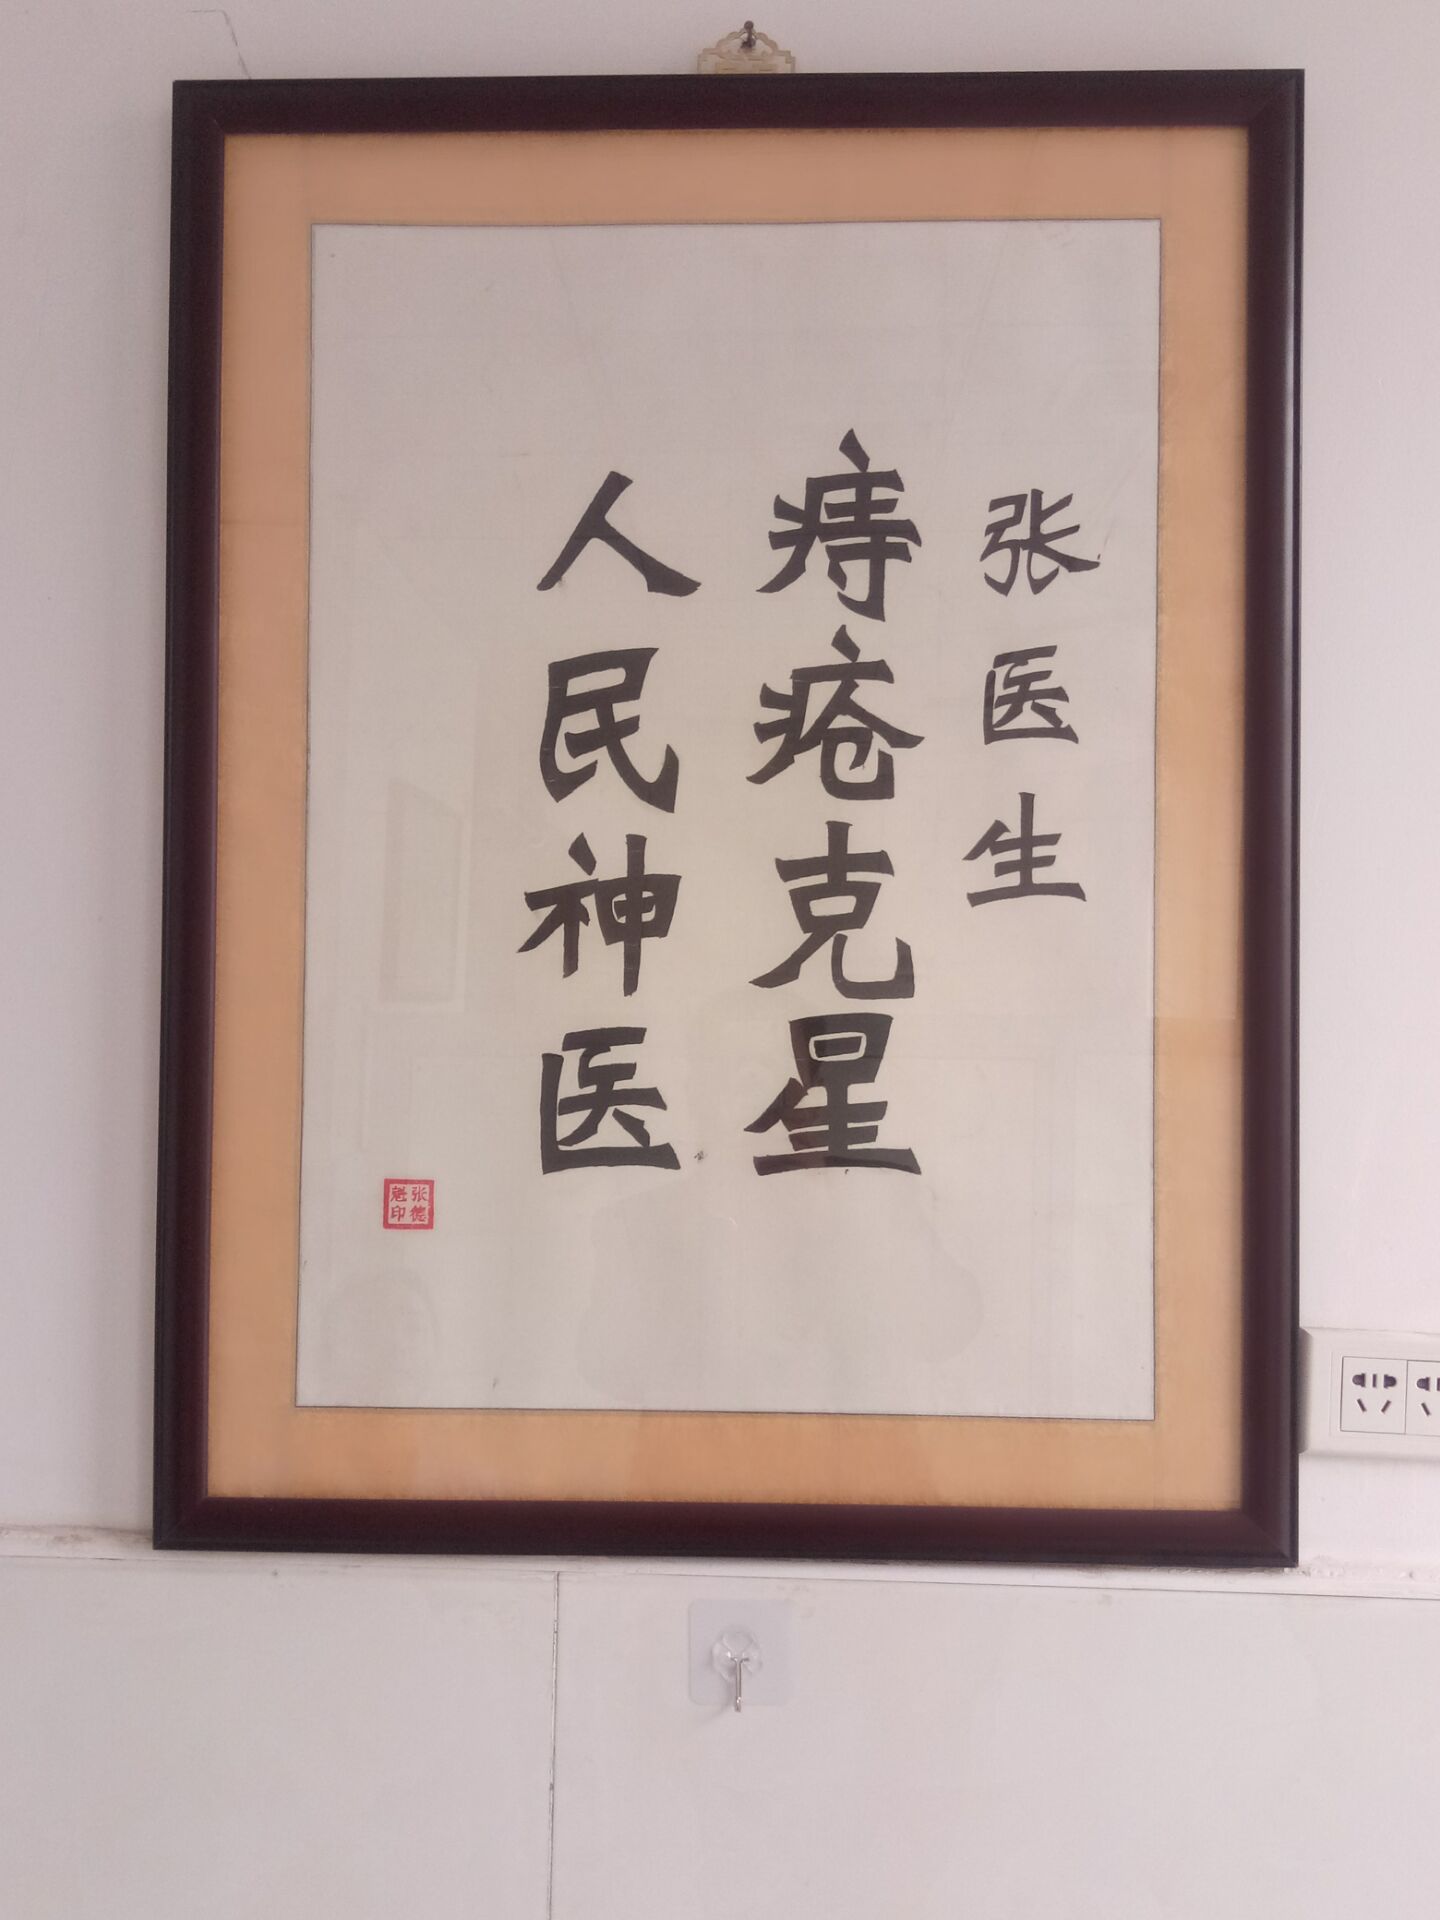 张医生
痔疮克星
人民神医
张德
魁印